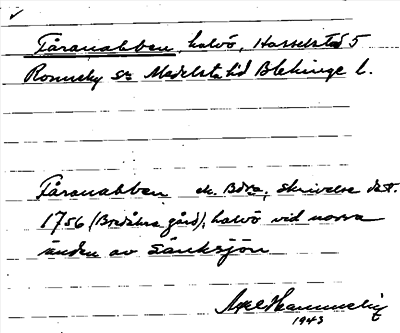 Fåranabben, halvö, Hasselstad 5
Ronneby sn Medelsta hd Blekinge l.
Fåranabben ek. Bdra, skrivelse dat.
1756 (Bredåkra gård), halvö vid norra
änden av Sänksjön
Axel
1943